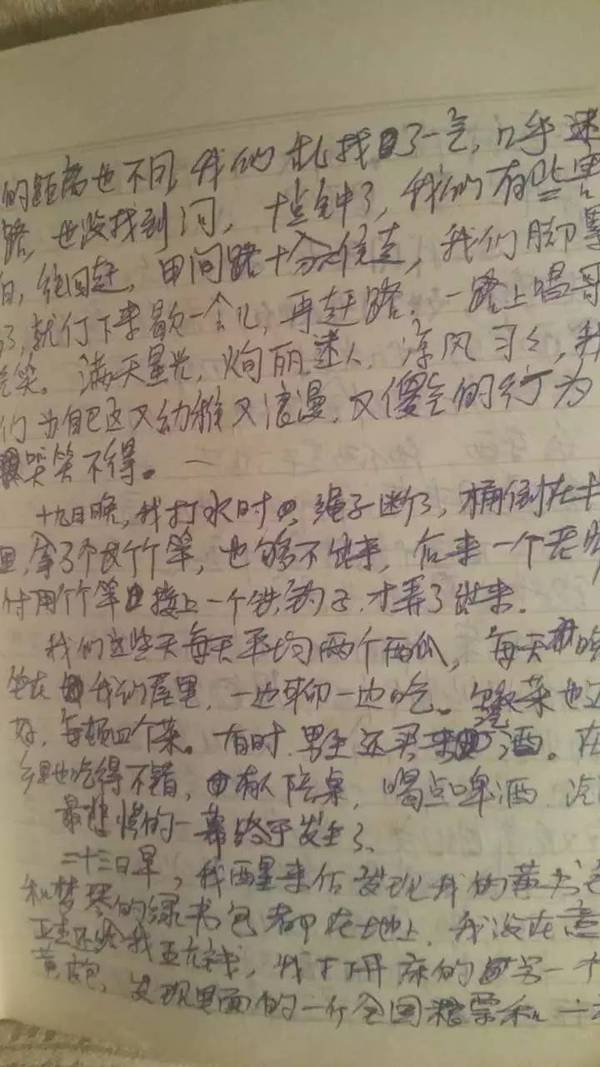 的距离也不同,我们乱找了一气,几乎迷
路,也没找到河,十点钟了,我们有些害
怕,往回赶,田间路十分难走,我们脚
了,就停下来歇一会儿,再赶路,一路上唱歌
笑。满天星光,绚丽迷人,凉风习习,我
们为自己这又幼稚又浪漫,又傻气的行为
哭笑不得。
十九日晚,我打水时,绳子断了,桶倒在井
里,拿了个长竹竿,也够不出来,后来一个老
用个竿接上一个铁钩子,才弄了出来。
我们这些天每天平均两个西瓜,每天都吃
坐在我们屋里,一边聊一边吃。饭菜也还
好,每顿四个菜。有时男生还买来酒。在
乡里也吃得不错,由有人陪桌,喝点啤酒、汽
最悲惨的一幕终于发生了。
二十三日早,我醒来后发现我的黄书包
和梦琴的绿书包都在地上,我没在意
还给我五元钱,我打开床的另一个
黄包,发现里面的一斤全国粮票和一